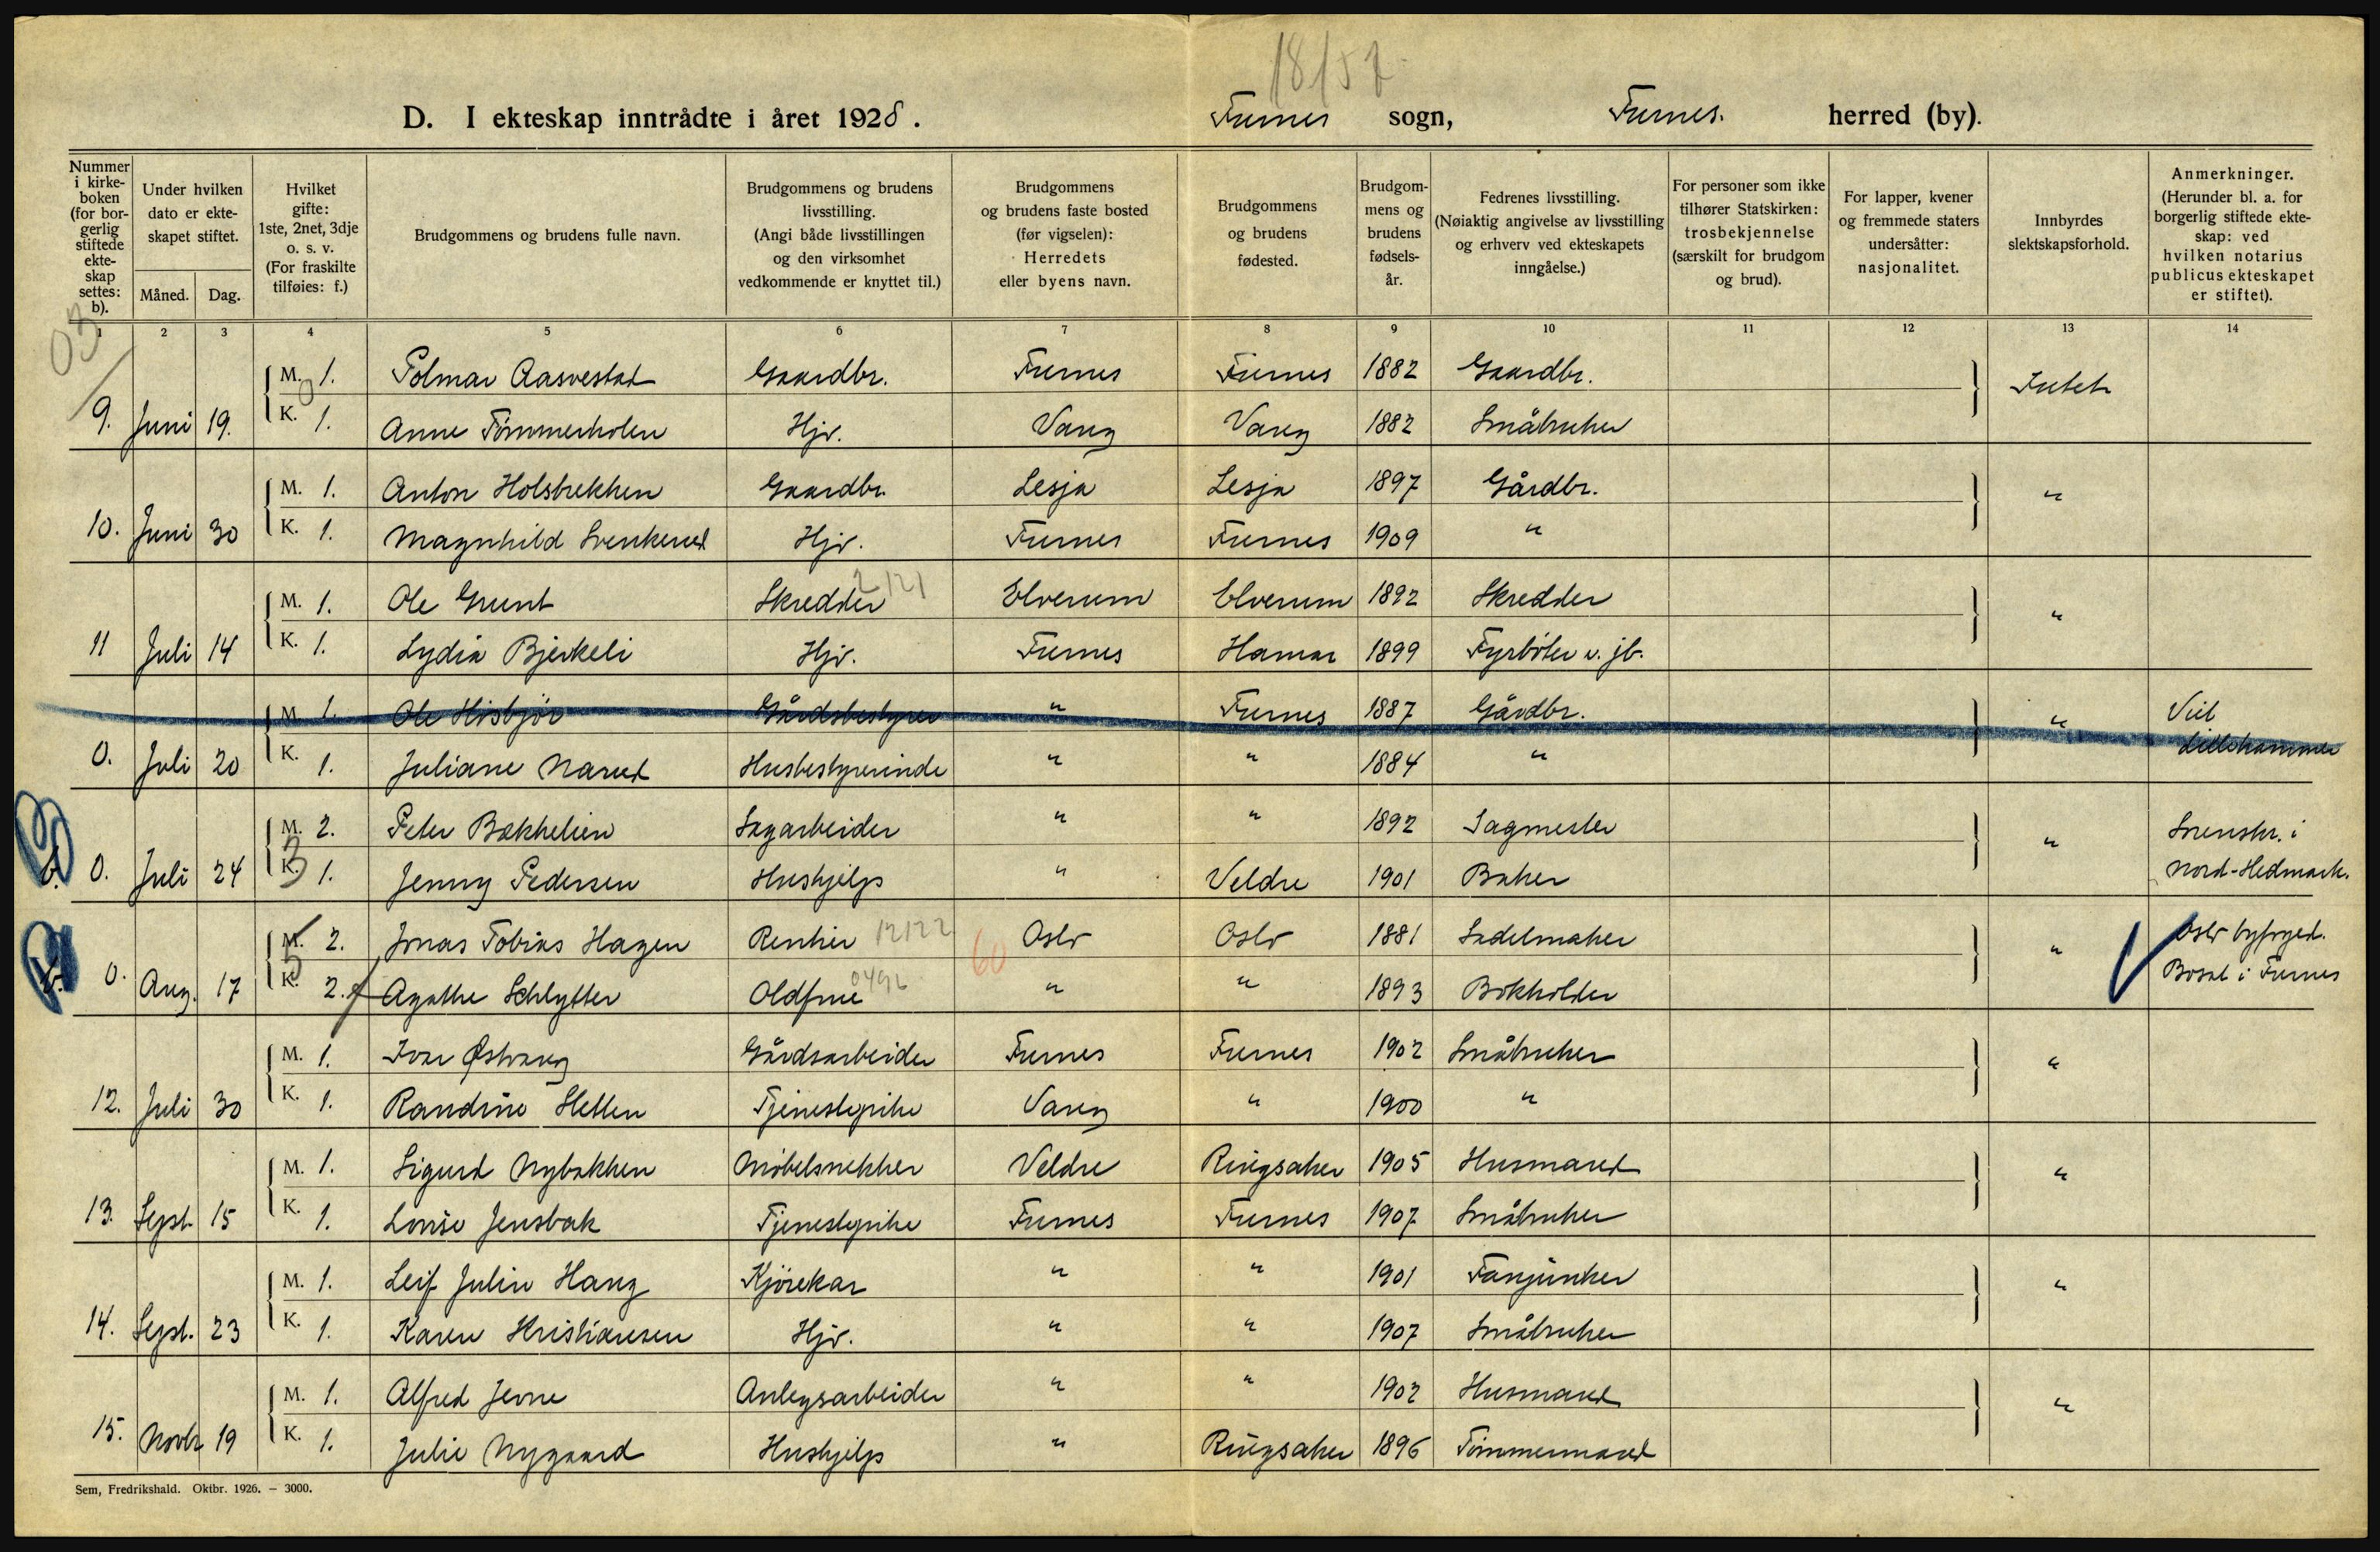 18/57
D. I ekteskap inntrådte i året 1928. Furnes sogn, Furnes. herred (by).
Nummer i kirkeboken (for borgerlig stiftede ekteskap settes: b).
Under hvilken dato er ekteskapet stiftet.
Måned. Dag.
Hvilket gifte: 1ste, 2net, 3dje o. s. v. (For fraskilte tilføies: f.)
Brudgommens og brudens fulle navn.
Brudgommens og brudens livsstilling. (Angi både livsstillingen og den virksomhet vedkommende er knyttet til.)
Brudgommens og brudens faste bosted (før vigselen): Herredets eller byens navn.
Brudgommens og brudens fødested.
Brudgommens og brudens fødselsår.
Fedrenes livsstilling. (Nøiaktig angivelse av livsstilling og erhverv ved ekteskapets inngåelse.)
For personer som ikke tilhører Statskirken: trosbekjennelse (særskilt for brudgom og brud).
For lapper, kvener og fremmede staters undersåtter: nasjonalitet.
Innbyrdes slektskapsforhold.
Anmerkninger. (Herunder bl. a. for borgerlig stiftede ekteskap: ved hvilken notarius publicus ekteskapet er stiftet).
03
1 2 3 4 5 6 7 8 9 10 11 12 13 14
M. 1. Polmar Aasvestad Gaardbr. Furnes Furnes 1882 Gaardbr. Intet
9. Juni 19. K. 1. Anne Tømmerholen Hjv. Vang Vang 1882 Småbruker
M. 1. Anton Holsbrekken Gaardbr. Lesja Lesja 1897 Gårdbr. "
10. Juni 30 K. 1. Magnhild Svenkerud Hjv. Furnes Furnes 1909 "
M. 1. Ole Grunt Skredder 2121 Elverum Elverum 1892 Skredder "
11 Juli 14 K. 1. Lydia Bjerkeli Hjv. Furnes Hamar 1899 Fyrbøter v. jb.
M. 1. Ole Hisbjør Gårdsbestyrer " Furnes 1887 Gårdbr. " Viet
0. Juli 20 K. 1. Juliane Narud Husbestyrerinde " " 1884 " Lillehammer
M. 2. Peter Bækkelien Sagarbeider " " 1892 Sagmester " Sorenskr. i
b. 0. Juli 24 K. 1. Jenny Pedersen Hushjelp " Veldre 1901 Baker Nord-Hedmark.
M. 2. Jonas Tobias Hagen Rentier 12122 60 Oslo Oslo 1881 Sadelmaker " Oslo byfoged.
b. 0. Aug. 17 K. 2. f Agathe Schlytter Oldfrue 0496 " " 1893 Bokholder Bosat i Furnes
M. 1. Ivar Østvang Gårdsarbeider Furnes Furnes 1902 Småbruker "
12. Juli 30 K. 1. Randine Sletten Tjenestepike Vang " 1900 "
M. 1. Sigurd Nybakken Møbelsnekker Veldre Ringsaker 1905 Husmand "
13. Sept. 15 K. 1. Lovise Jensbak Tjenestepike Furnes Furnes 1907 Småbruker
M. 1. Leif Julin Haug Kjørekar " " 1901 Fanejunker "
14. Sept. 23 K. 1. Karen Kristiansen Hjv. " " 1907 Småbruker
M. 1. Alfred Jevne Anlegsarbeider " " 1902 Husmand "
15. Novbr 19 K. 1. Julie Nygaard Hushjelp " Ringsaker 1896 Tømmermand
Sem, Fredrikshald. Oktbr. 1926. — 3000.